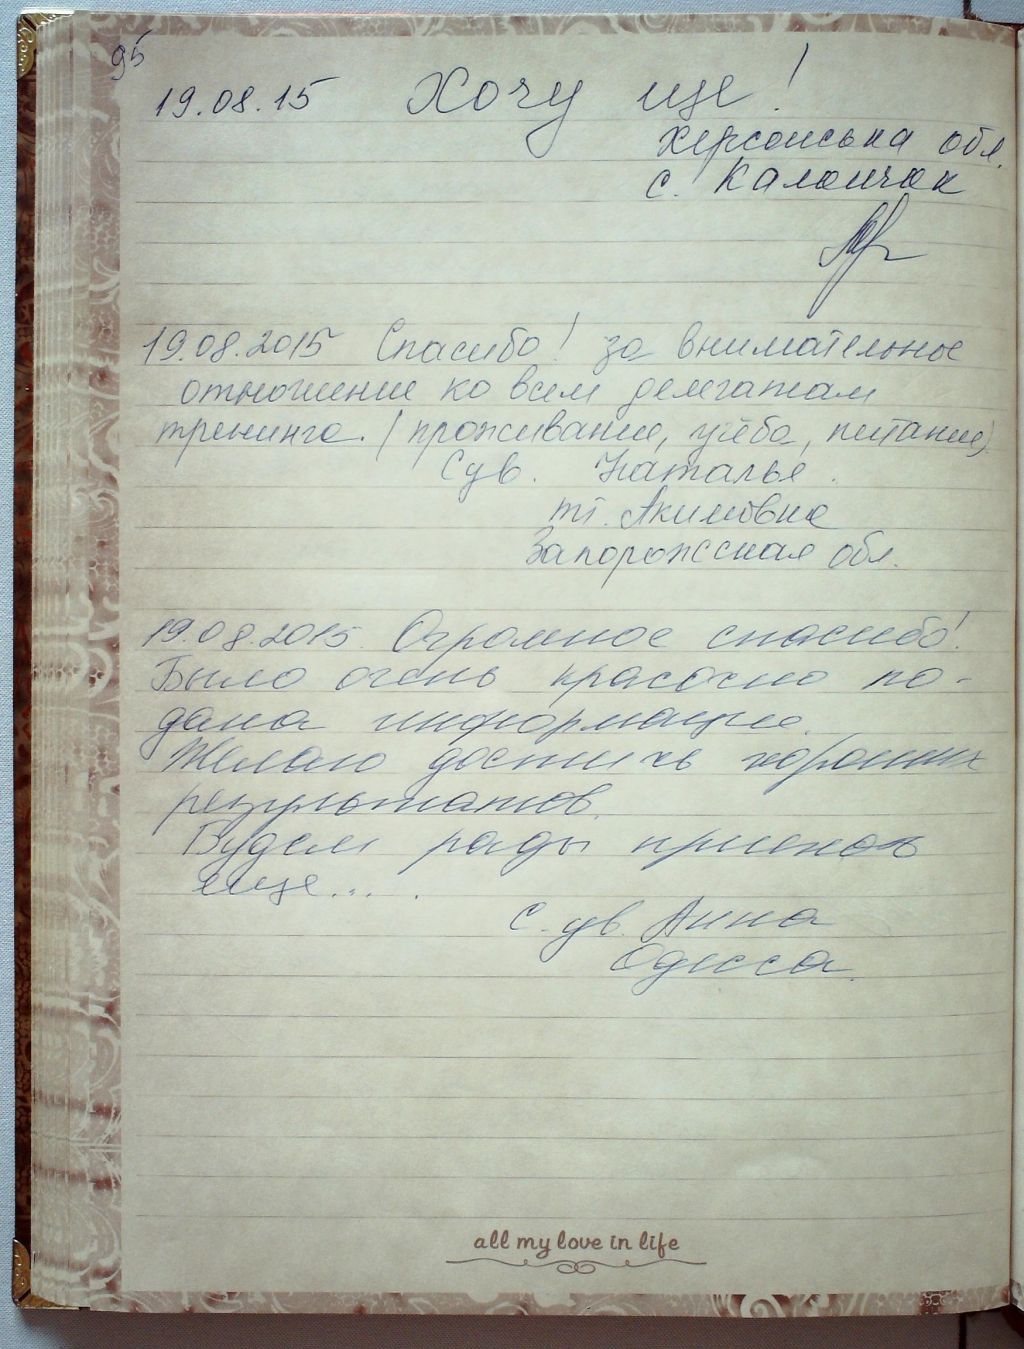 95
19.08.15 Хочу ще!
Херсонська обл.
с. Каланчак
19.08.2015 Спасибо! за внимательное
отношение ко всем делегатам
тренинга. (проживание, учёба, питание)
С ув. Наталья.
пгт. Акимовка
Запорожская обл.
19.08.2015. Огромное спасибо!
Было очень красочно по-
дана информация.
Желаю достичь хороших
результатов.
Будем рады приехать
еще....
С. ув. Анна
Одесса.
all my love in life